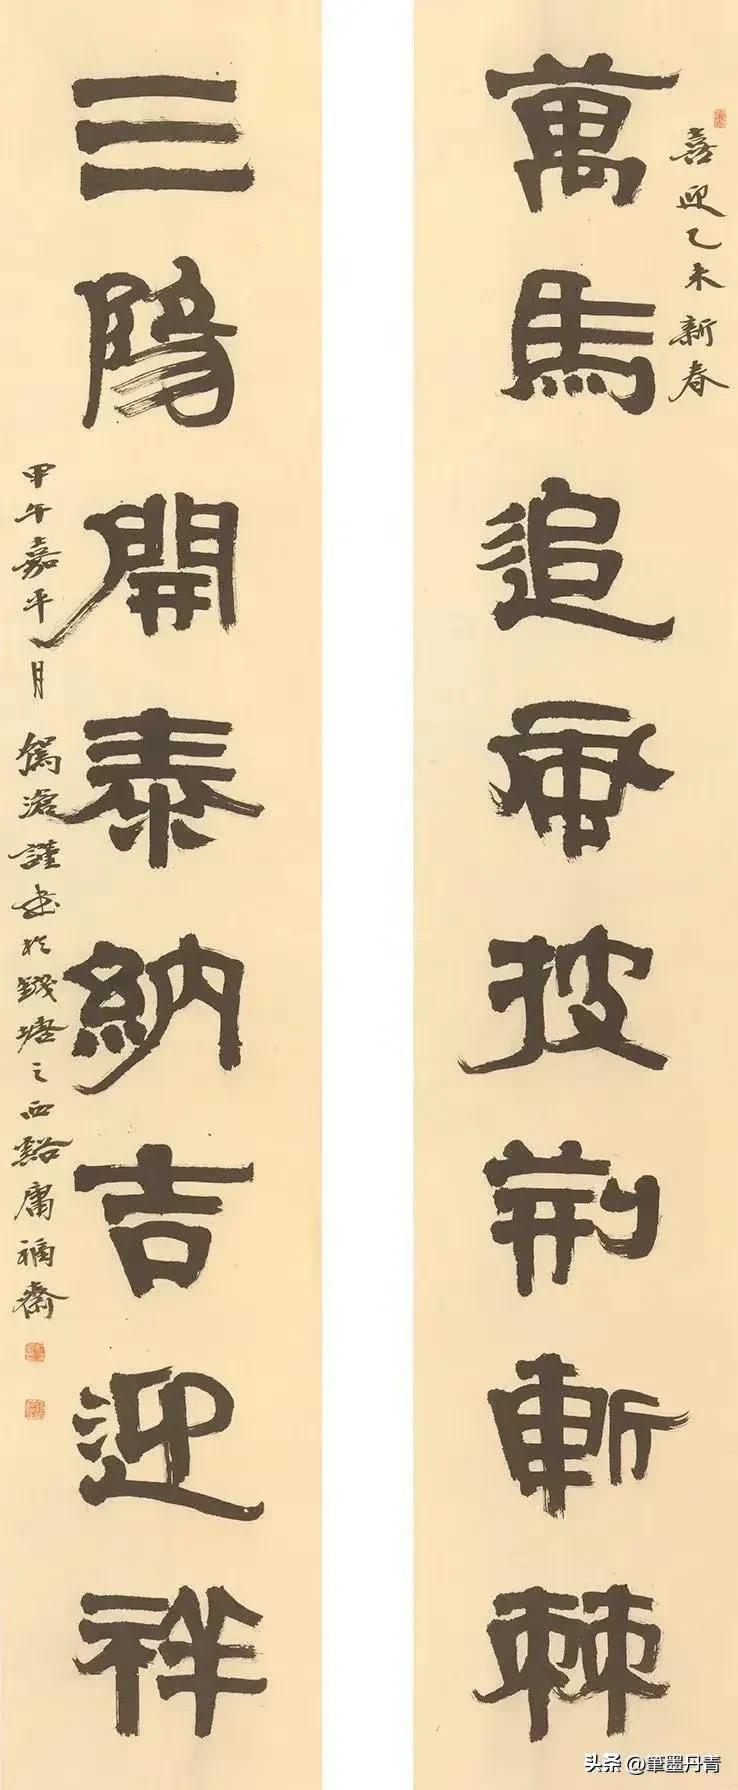 喜迎乙未新春
萬馬追風披荆斬棘
三陽開泰納吉迎祥
甲午嘉平月 滄謹書於錢塘之西谿庸福齋
头条 @筆墨丹青